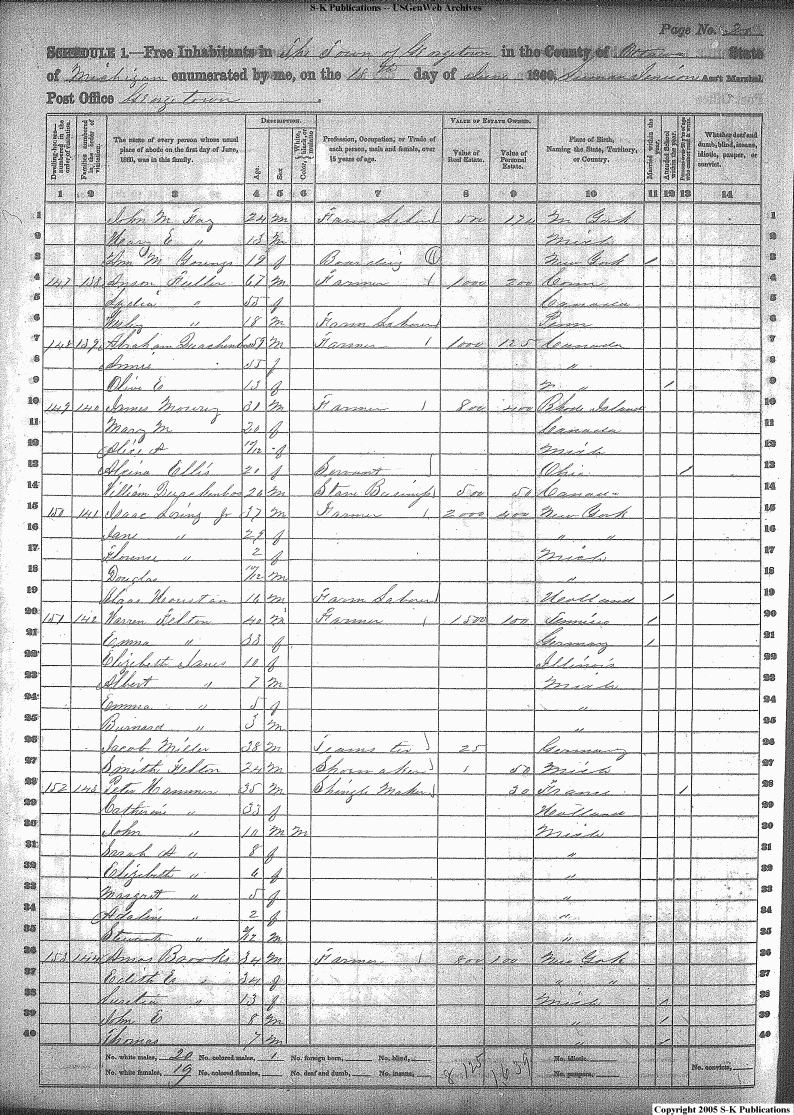 S-K Publications -- USGenWeb Archives
Page No.
SCHEDULE 1.—Free Inhabitants in The Town of Georgtown in the County of Ottawa State
of Michigan enumerated by me, on the day of June 1860. Ass't Marshal.
Post Office Georgetown
Dwelling-houses— numbered in the order of visitation.
Families numbered in the order of visitation.
The name of every person whose usual place of abode on the first day of June, 1860, was in this family.
DESCRIPTION.
Age.
Sex
Color, White, black, or mulatto
Profession, Occupation, or Trade of each person, male and female, over 15 years of age.
VALUE OF ESTATE OWNED.
Value of Real Estate.
Value of Personal Estate.
Place of Birth, Naming the State, Territory, or Country.
Married within the year.
Attended School within the year.
Whether deaf and dumb, blind, insane, idiotic, pauper, or convict.
1 2 3 4 5 6 7 8 9 10 11 12 13 14
1 John M Fay 24 M Farm Labor 500 N. York 1
2 Henry E " 13 M Mich 2
3 Wm M 19 f Boarding New York 3
4 147 138 Anson Fuller 67 M Farmer 1000 200 Conn 4
5 Lydia " 55 f Canada 5
6 " 18 M Farm Laborer Penn 6
7 148 139 Abraham 59 M Farmer 1000 125 Canada 7
8 Annie 55 f " 8
9 Olive E 13 f " 9
10 149 140 James 31 M Farmer 800 400 Rhode Island 10
11 Mary M 30 f Canada 11
12 Alice A f Mich 12
13 Ellis 20 f Servant Ohio 13
14 William 26 M Stave Business 500 50 Canada 14
15 150 141 Isaac Loring Jr 37 M Farmer 2000 400 New York 15
16 Jane " 29 f " " 16
17 Florence " 2 f Mich 17
18 Douglas M " 18
19 Houston 16 M Farm Labor Holland 19
20 151 142 Warren Felton 40 M Farmer 1500 100 20
21 Emma " 33 f Germany 21
22 Elizabeth Janes 10 f Illinois 22
23 Albert " 7 M Mich 23
24 Emma " 5 f " 24
25 Burnard " 3 M " 25
26 Jacob Miller 38 M Teamster 25 Germany 26
27 Smith Felton 24 M Shoemaker 1 50 Mich 27
28 152 143 Peter Hammer 35 M Shingle Maker 30 France 28
29 Catherine " 33 f Holland 29
30 John " 10 M M Mich 30
31 Sarah A " 8 f " 31
32 Elizabeth " 6 f " 32
33 Margret " 5 f " 33
34 Adaline " 2 f " 34
35 Steward " M " 35
36 153 144 Amos Brooks 34 M Farmer 800 100 New York 36
37 Edith E " 34 f " " 37
38 " 13 f Mich 38
39 John E 8 M " 39
40 Thomas 7 M " 40
No. white males, 20 No. colored males, 1 No. foreign born, No. blind, No. idiotic
No. white females, 19 No. colored females, No. deaf and dumb, No. insane, No. paupers, No. convicts,
8125 1639
Copyright 2005 S-K Publications